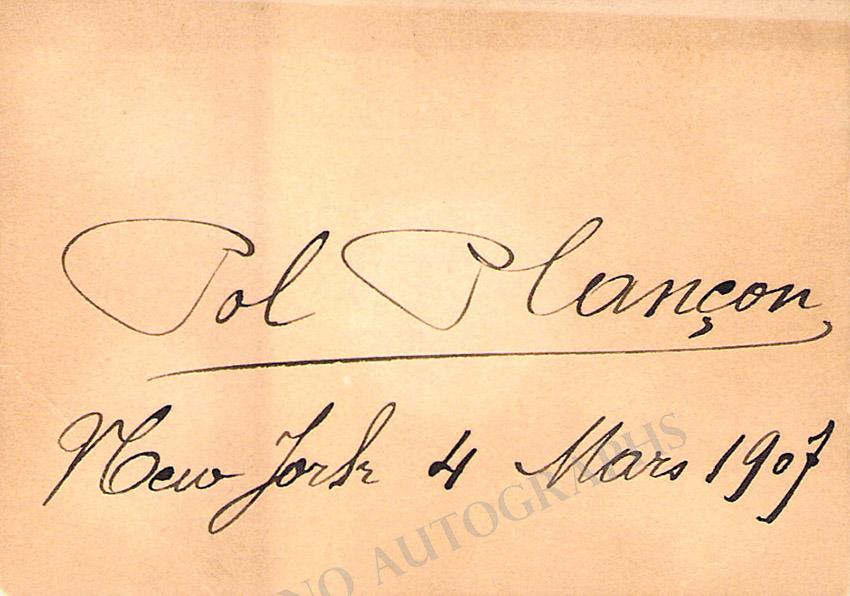 Pol Plançon
New York 4 Mars 1907
NO AUTOGRAPHS